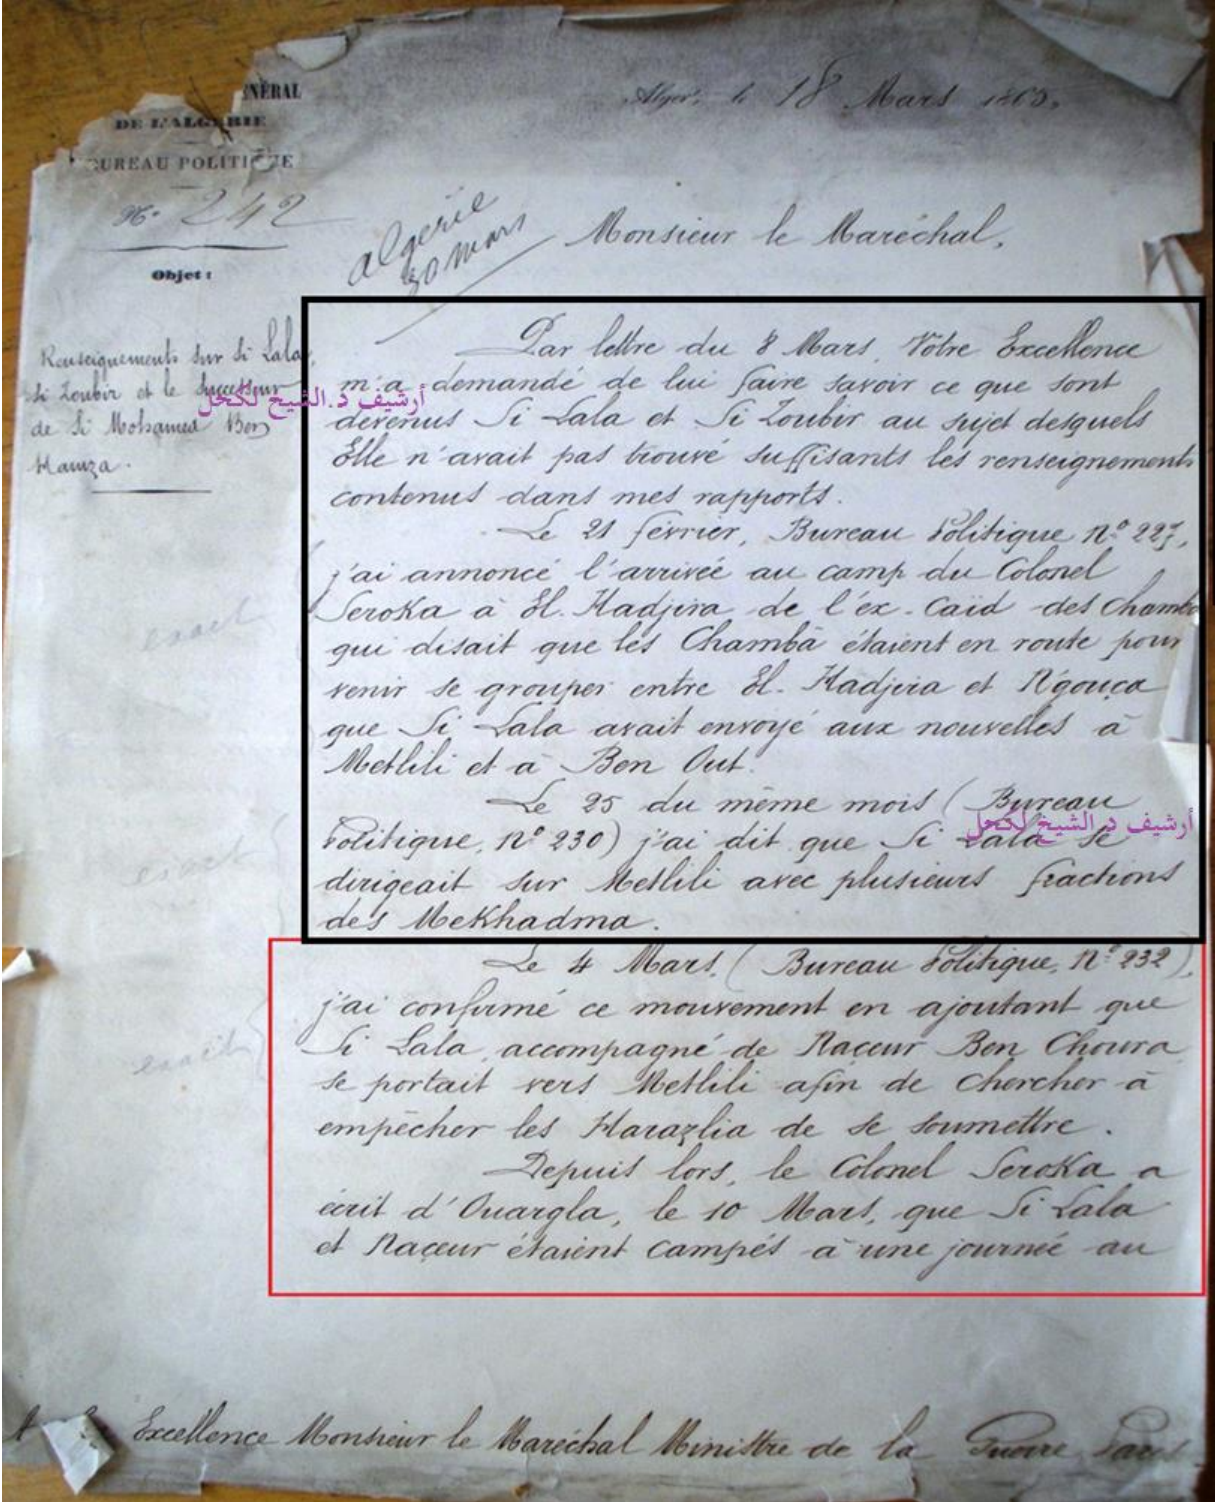 NÉRAL
DE L'ALGÉRIE
BUREAU POLITIQUE
N° 242
Alger, le 18 Mars 1865.
algérie
30 mars
Monsieur le Maréchal,
Objet :
Renseignements sur Si Lala,
Si Zoubir et le Successeur
de Si Mohamed Ben
Hamza.
أرشيف د. الشيخ لكحل
Par lettre du 8 Mars, Votre Excellence
m'a demandé de lui faire savoir ce que sont
devenus Si Lala et Si Zoubir au sujet desquels
Elle n'avait pas trouvé suffisants les renseignements
contenus dans mes rapports.
Le 21 février, Bureau Politique N° 227,
j'ai annoncé l'arrivée au camp du Colonel
Seroka à El. Hadjira de l'ex-Caïd des Chamba
qui disait que les Chamba étaient en route pour
venir se grouper entre El-Hadjira et N'gouça
que Si Lala avait envoyé aux nouvelles à
Metlili et à Ben Out.
Le 25 du même mois (Bureau
Politique, N° 230) j'ai dit que Si Lala se
أرشيف د. الشيخ لكحل
dirigeait sur Metlili avec plusieurs fractions
des Mekhadma.
exact
exact
exact
Le 4 Mars, (Bureau Politique, N° 232),
j'ai confirmé ce mouvement en ajoutant que
Si Lala, accompagné de Naçeur Ben Choura
se portait vers Metlili afin de chercher à
empêcher les Harazlia de se soumettre.
Depuis lors, le Colonel Seroka a
écrit d'Ouargla, le 10 Mars, que Si Lala
et Naçeur étaient campés à une journée au
Excellence Monsieur le Maréchal Ministre de la Guerre Paris